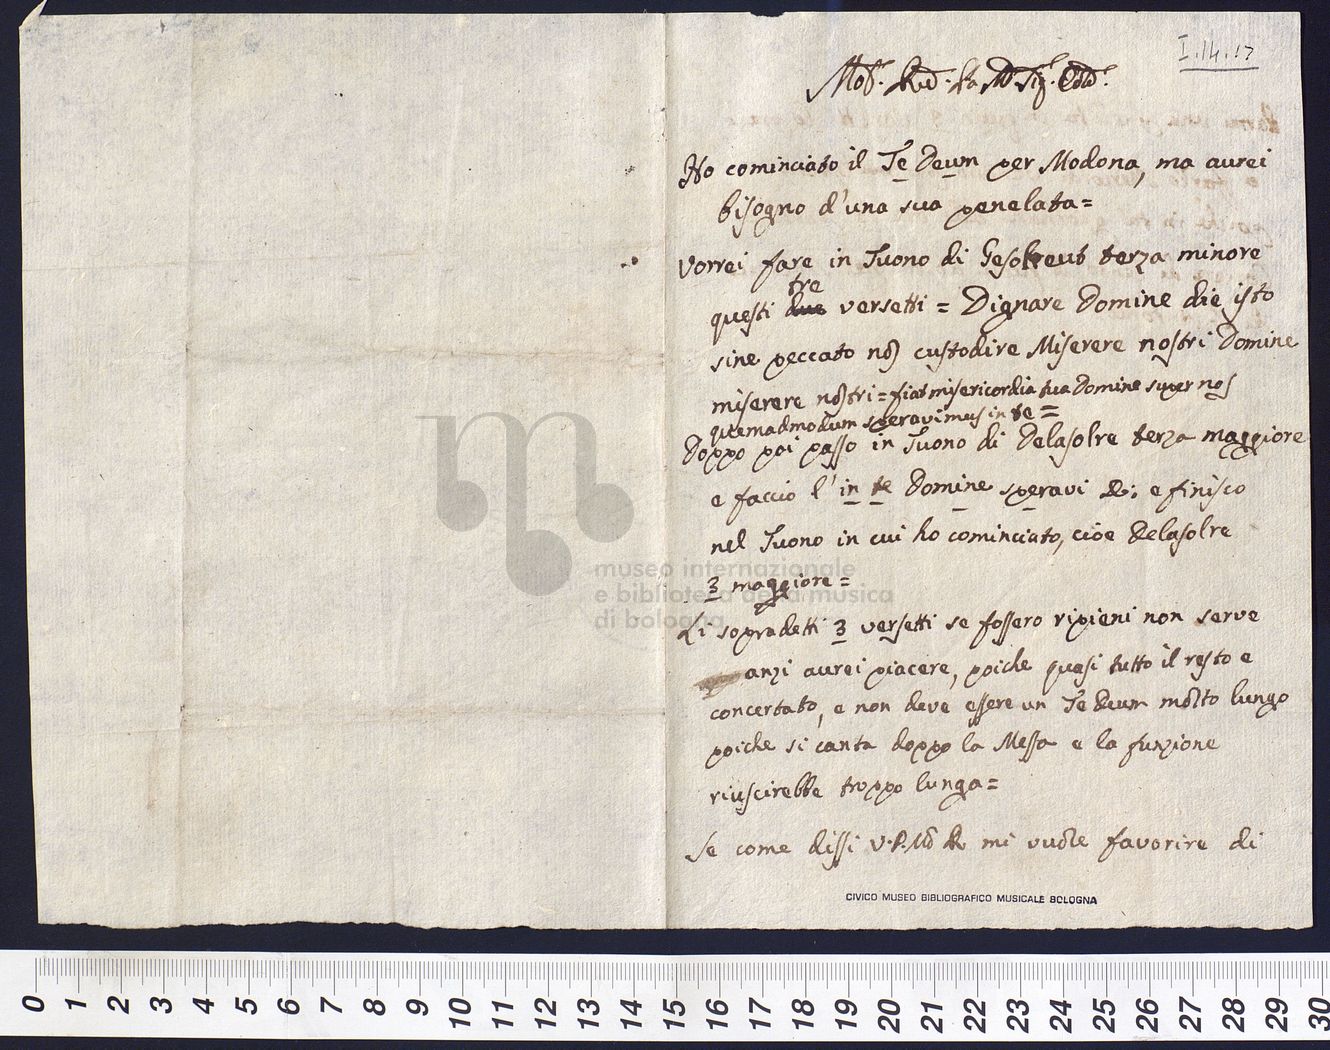 I.14.17
Mol. Rud. Pa Mro Sig. Colmo.
Ho cominciato il Te Deum per Modona, ma aurei
bisogno d'una sua penelata=
Vorrei fare in Tuono di Gesolreut terza minore
tre
questi due versetti = Dignare Domine die isto
sine peccato nos custodire Miserere nostri Domine
miserere nostri = fiat misericordia tua Domine super nos
quemadmodum speravimus in te =
Doppo poi passo in Tuono di Delasolre terza maggiore
e faccio l'in te Domine speravi &; e finisco
nel Tuono in cui ho cominciato, cioe Delasolre
3 maggiore=
Li sopradetti 3 versetti se fossero ripieni non serve
anzi aurei piacere, poiche quasi tutto il resto e
concertato, e non deve essere un Te Deum molto lungo
poiche si canta doppo la Messa e la funzione
riuscirebbe troppo lunga=
Se come dissi V.P. Mo R mi vuole favorire di
CIVICO MUSEO BIBLIOGRAFICO MUSICALE BOLOGNA
m
museo internazionale
e biblioteca della musica
di bologna
0 1 2 3 4 5 6 7 8 9 10 11 12 13 14 15 16 17 18 19 20 21 22 23 24 25 26 27 28 29 30